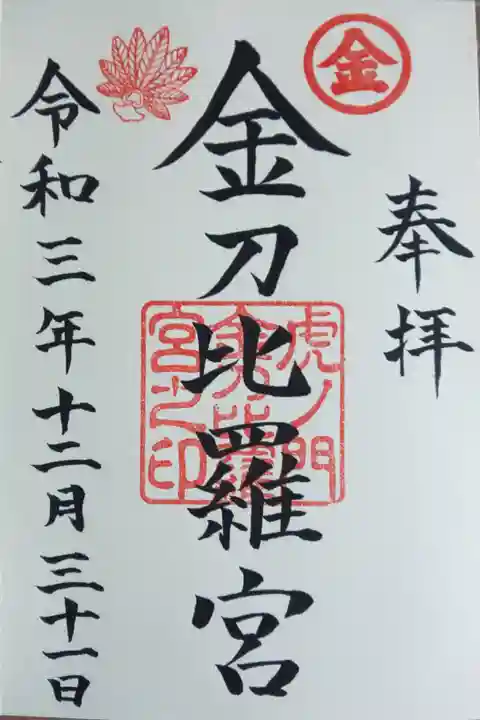 金
奉拝
金刀比羅宮
虎ノ門
金刀比羅
宮之印
令和三年十二月三十一日